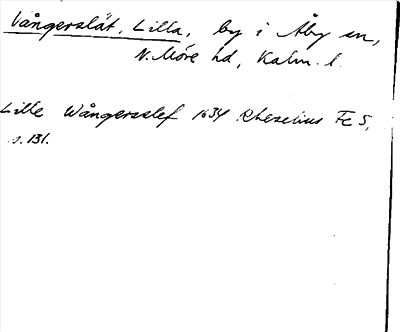 Vångerslät, Lilla, by i Åby sn,
N. Möre hd, Kalm. l.
Lille Wångerslef 1634 Rhezelius Fc 5,
s. 131.